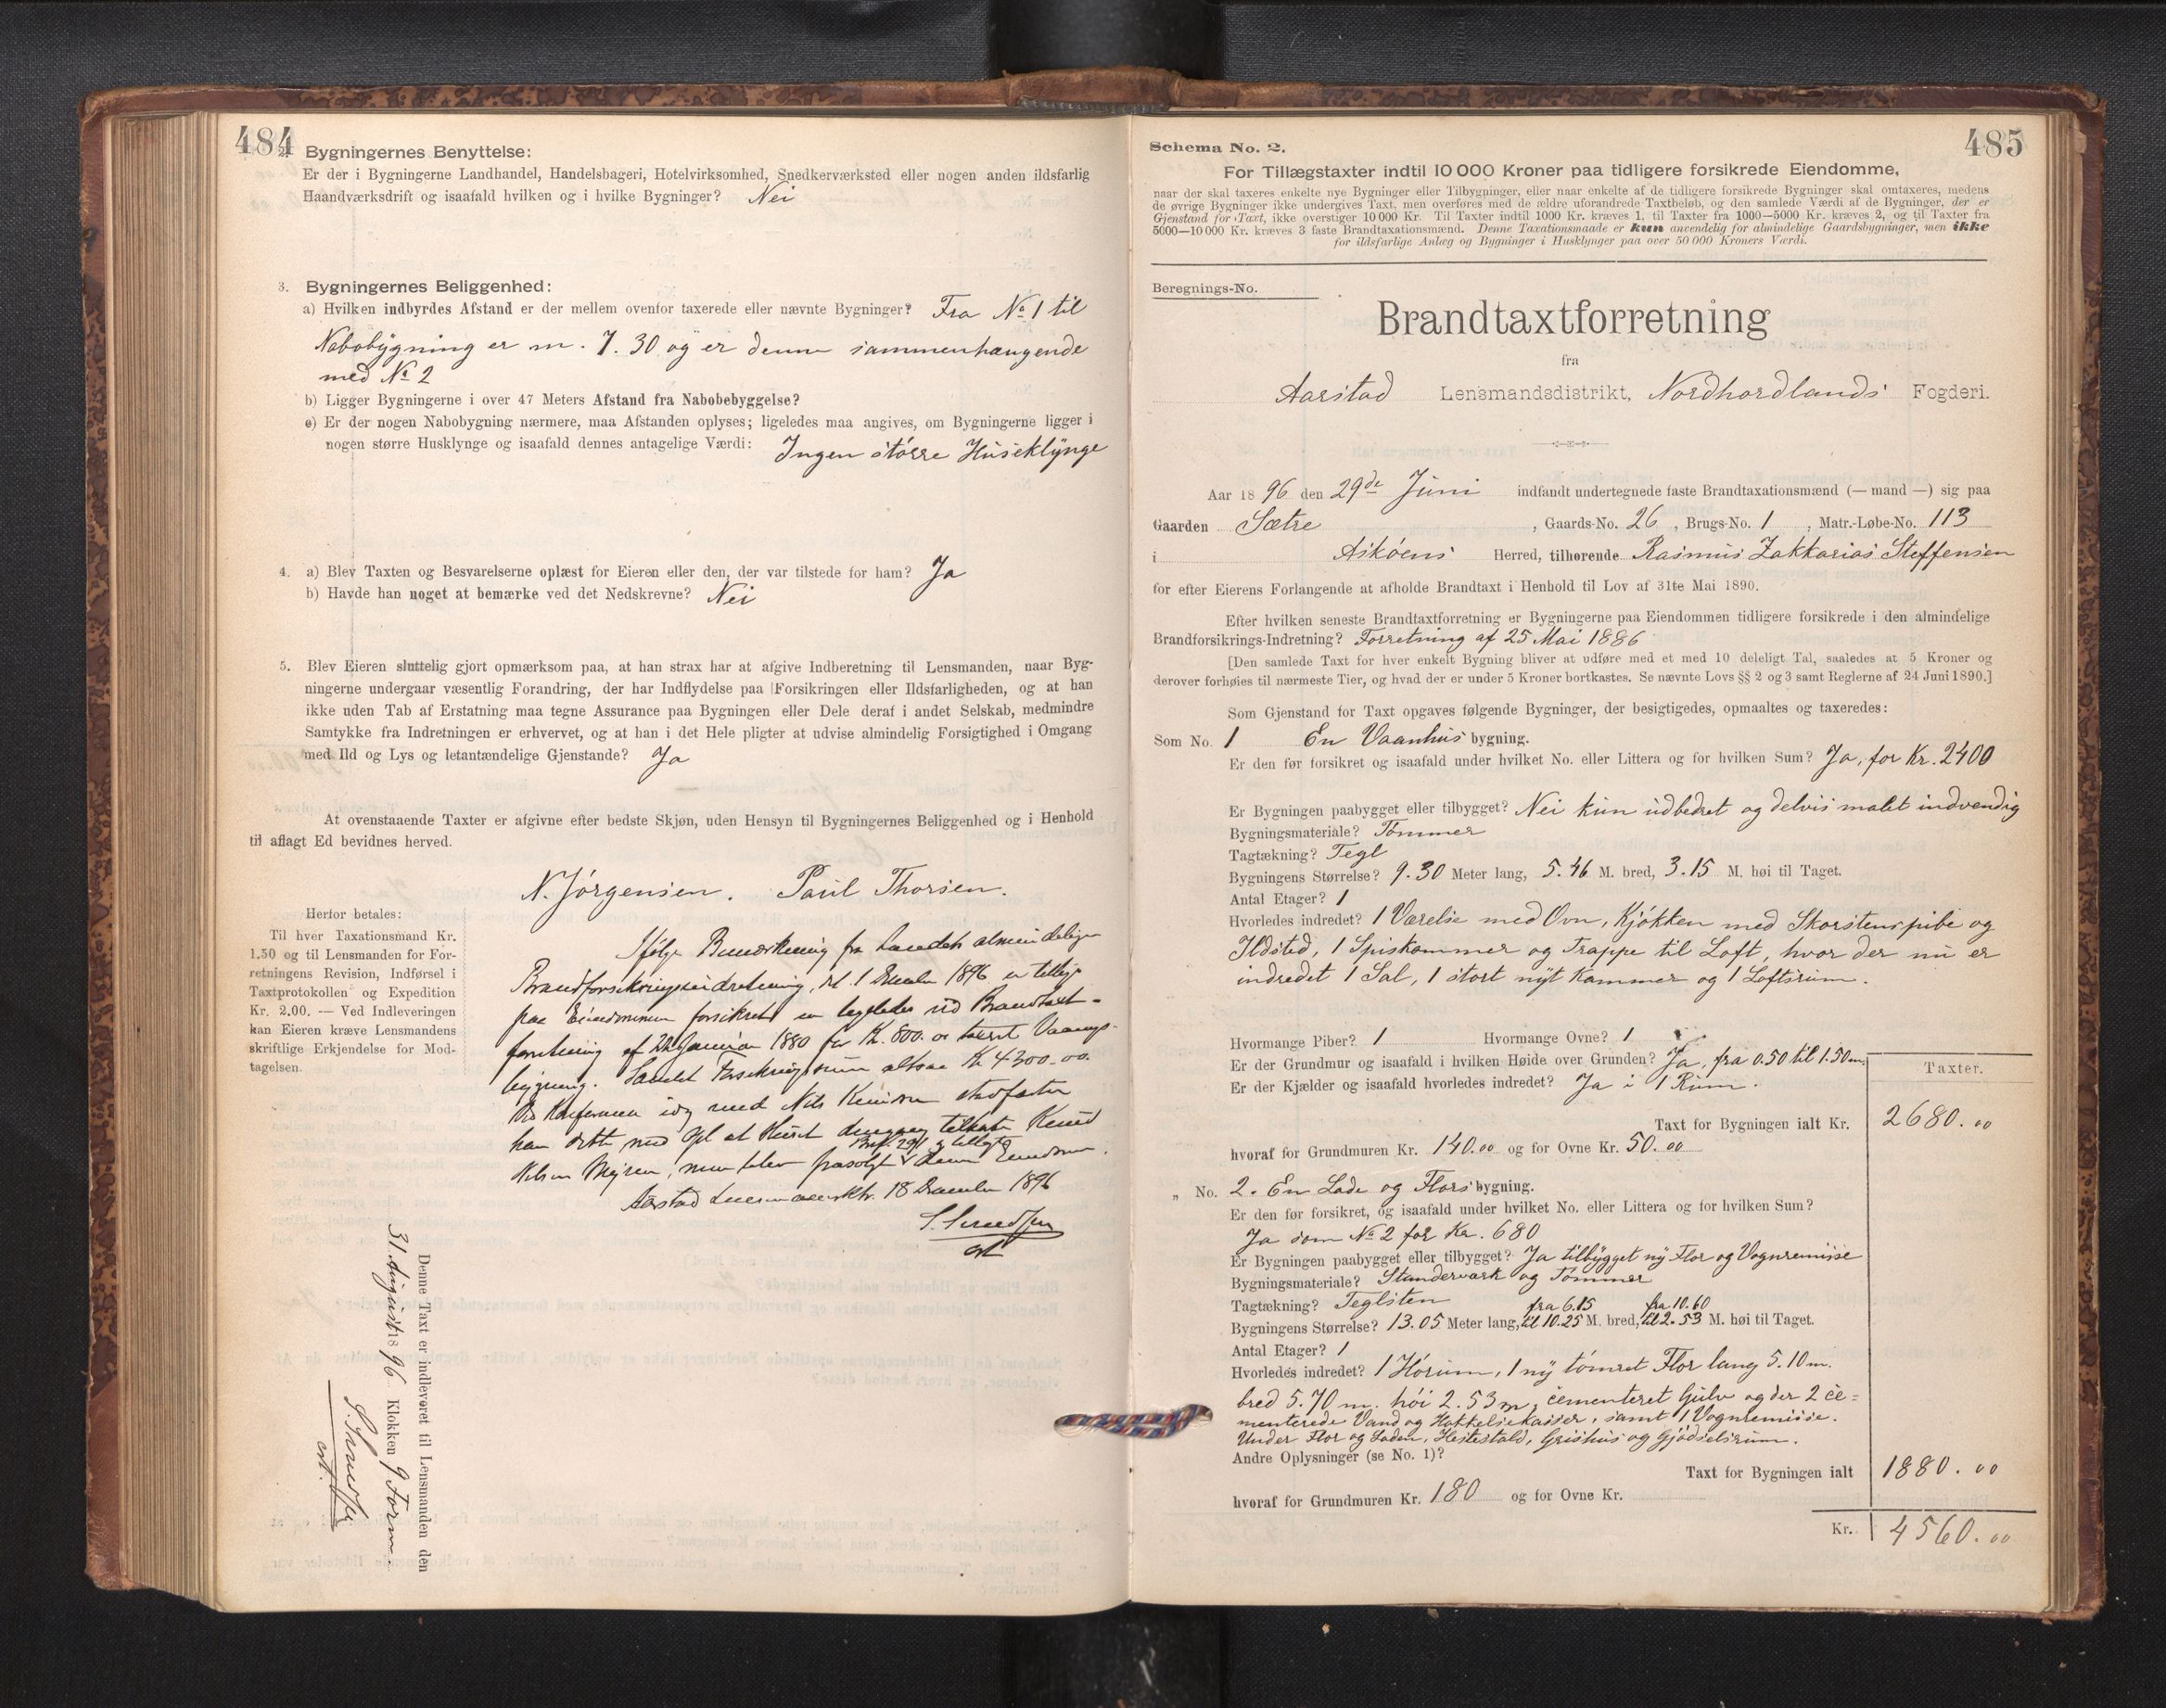 484
2. Bygningernes Benyttelse:
Er der i Bygningerne Landhandel, Handelsbageri, Hotelvirksomhed, Snedkerværksted eller nogen anden ildsfarlig
Haandværksdrift og isaafald hvilken og i hvilke Bygninger? Nei
3. Bygningernes Beliggenhed:
a) Hvilken indbyrdes Afstand er der mellem ovenfor taxerede eller nævnte Bygninger? Fra No 1 til
Nabobygning er m. 7.30 og er denne sammenhængende
med No 2
b) Ligger Bygningerne i over 47 Meters Afstand fra Nabobebyggelse?
c) Er der nogen Nabobygning nærmere, maa Afstanden oplyses; ligeledes maa angives, om Bygningerne ligger i
nogen større Husklynge og isaafald dennes antagelige Værdi: Ingen større Huseklynge
4. a) Blev Taxten og Besvarelserne oplæst for Eieren eller den, der var tilstede for ham? Ja
b) Havde han noget at bemærke ved det Nedskrevne? Nei
5. Blev Eieren sluttelig gjort opmærksom paa, at han strax har at afgive Indberetning til Lensmanden, naar Byg-
ningerne undergaar væsentlig Forandring, der har Indflydelse paa Forsikringen eller Ildsfarligheden, og at han
ikke uden Tab af Erstatning maa tegne Assurance paa Bygningen eller Dele deraf i andet Selskab, medmindre
Samtykke fra Indretningen er erhvervet, og at han i det Hele pligter at udvise almindelig Forsigtighed i Omgang
med Ild og Lys og letantændelige Gjenstande? Ja
At ovenstaaende Taxter er afgivne efter bedste Skjøn, uden Hensyn til Bygningernes Beliggenhed og i Henhold
til aflagt Ed bevidnes herved.
N. Jørgensen. Paul Thorsen.
Herfor betales:
Til hver Taxationsmand Kr.
1.50 og til Lensmanden for For-
retningens Revision, Indførsel i
Taxtprotokollen og Expedition
Kr. 2.00. — Ved Indleveringen
kan Eieren kræve Lensmandens
skriftlige Erkjendelse for Mod-
tagelsen.
Ifølge Bemærkning fra Landets almindelige
Brandforsikringsindretning, dd. 1 December 1896 er tillige
paa Eiendommen forsikret en ligeledes ved Brandtaxt-
forretning af 22 Januar 1880 for Kr. 800.00 taxeret Vaanings-
bygning. Samlet Forsikringssum altsaa Kr 4300.00.
han dette med at Huset Knud
Nilsen men blev frasolgt denne Eiendom.
Aarstad Lensmandsktr. 18 December 1896
Denne Taxt er indleveret til Lensmanden den
31 August 1896 Klokken 9 Form.
485
Schema No. 2.
For Tillægstaxter indtil 10 000 Kroner paa tidligere forsikrede Eiendomme,
naar der skal taxeres enkelte nye Bygninger eller Tilbygninger, eller naar enkelte af de tidligere forsikrede Bygninger skal omtaxeres, medens
de øvrige Bygninger ikke undergives Taxt, men overføres med de ældre uforandrede Taxtbeløb, og den samlede Værdi af de Bygninger, der er
Gjenstand for Taxt, ikke overstiger 10 000 Kr. Til Taxter indtil 1000 Kr. kræves 1, til Taxter fra 1000—5000 Kr. kræves 2, og til Taxter fra
5000—10 000 Kr. kræves 3 faste Brandtaxationsmænd. Denne Taxationsmaade er kun anvendelig for almindelige Gaardsbygninger, men ikke
for ildsfarlige Anlæg og Bygninger i Husklynger paa over 50 000 Kroners Værdi.
Beregnings-No.
Brandtaxtforretning
fra
Aarstad Lensmandsdistrikt, Nordhordlands Fogderi.
Aar 1896 den 29de Juni indfandt undertegnede faste Brandtaxationsmænd (— mand —) sig paa
Gaarden Sætre, Gaards-No. 26, Brugs-No. 1, Matr.-Løbe-No. 113
i Askøens Herred, tilhørende Rasmus Zakkarias Steffensen
for efter Eierens Forlangende at afholde Brandtaxt i Henhold til Lov af 31te Mai 1890.
Efter hvilken seneste Brandtaxtforretning er Bygningerne paa Eiendommen tidligere forsikrede i den almindelige
Brandforsikrings-Indretning? Forretning af 25 Mai 1886
[Den samlede Taxt for hver enkelt Bygning bliver at udføre med et med 10 deleligt Tal, saaledes at 5 Kroner og
derover forhøies til nærmeste Tier, og hvad der er under 5 Kroner bortkastes. Se nævnte Lovs §§ 2 og 3 samt Reglerne af 24 Juni 1890.]
Som Gjenstand for Taxt opgaves følgende Bygninger, der besigtigedes, opmaaltes og taxeredes:
Som No. 1 En Vaanhus bygning.
Er den før forsikret og isaafald under hvilket No. eller Littera og for hvilken Sum? Ja, for Kr. 2400
Er Bygningen paabygget eller tilbygget? Nei kun udbedret og delvis malet indvendig
Bygningsmateriale? Tømmer
Tagtækning? Tegl
Bygningens Størrelse? 9.30 Meter lang, 5.46 M. bred, 3.15 M. høi til Taget.
Antal Etager? 1
Hvorledes indredet? 1 Værelse med Ovn, Kjøkken med Skorstenspibe og
Ildsted, 1 Spiskammer og Trappe til Loft, hvor der nu er
indredet 1 Sal, 1 stort nyt Kammer og 1 Loftsrum.
Hvormange Piber? 1 Hvormange Ovne? 1
Er der Grundmur og isaafald i hvilken Høide over Grunden? Ja, fra 0.50 til 1.50 m.
Er der Kjælder og isaafald hvorledes indredet? Ja i 1 Rum.
Taxter.
Taxt for Bygningen ialt Kr. 2680.00
hvoraf for Grundmuren Kr. 140.00 og for Ovne Kr. 50.00
„ No. 2. En Lade og Flors bygning.
Er den før forsikret, og isaafald under hvilket No. eller Littera og for hvilken Sum?
Ja som No 2 for Kr. 680
Er Bygningen paabygget eller tilbygget? Ja tilbygget ny Flor og Vognremisse
Bygningsmateriale? Standerværk og Tømmer
Tagtækning? Teglsten
Bygningens Størrelse? 13.05 Meter lang, fra 6.15 til 10.25 M. bred, fra 10.60 til 2.53 M. høi til Taget.
Antal Etager? 1
Hvorledes indredet? 1 Hørum, 1 ny tømret Flor lang 5.10 m.
bred 5.70 m. høi 2.53 m, cementeret Gulv og der 2 ce=
menterede Vand og Hakkelsekasser, samt 1 Vognremisse.
Under Flor og Laden, Hestestald, Grishus og Gjødselsrum.
Andre Oplysninger (se No. 1)?
Taxt for Bygningen ialt 1880.00
hvoraf for Grundmuren Kr. 180 og for Ovne Kr.
Kr. 4560.00